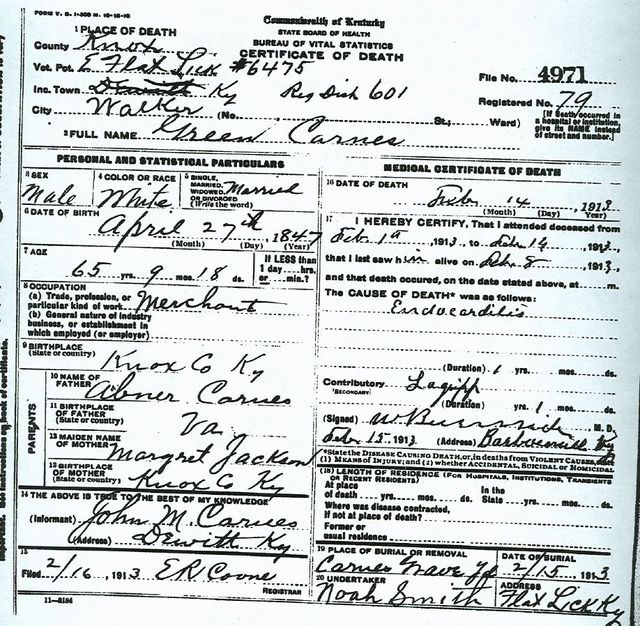 FORM V. S. 1-
Commonwealth of Kentucky
STATE BOARD OF HEALTH
BUREAU OF VITAL STATISTICS
CERTIFICATE OF DEATH
1 PLACE OF DEATH
County Knox
Vot. Pct. E Flat Lick #6475
File No. 4971
Inc. Town Dewitt Ky Reg Dist 601
Registered No. 79
City Walker (No. St.; Ward)
[If Death occurred in a hospital or institution, give its NAME instead of street and number.]
2 FULL NAME Green Carnes
PERSONAL AND STATISTICAL PARTICULARS
3 SEX Male
4 COLOR OR RACE White
5 SINGLE, MARRIED, WIDOWED, OR DIVORCED (Write the word) Married
6 DATE OF BIRTH
April 27th, 1847
(Month) (Day) (Year)
7 AGE
65 yrs. 9 mos. 18 ds.
If LESS than 1 day....hrs. or....min.?
8 OCCUPATION
(a) Trade, profession, or particular kind of work Merchant
(b) General nature of industry business, or establishment in which employed (or employer)
9 BIRTHPLACE
(State or country) Knox Co Ky
PARENTS
10 NAME OF FATHER Abner Carnes
11 BIRTHPLACE OF FATHER (State or country) Va.
12 MAIDEN NAME OF MOTHER Margret Jackson
13 BIRTHPLACE OF MOTHER (State or country) Knox Co Ky
14 THE ABOVE IS TRUE TO THE BEST OF MY KNOWLEDGE
(Informant) John M. Carnes
(Address) Dewitt Ky
15
Filed 2/16, 1913 E R Coone
REGISTRAR
11-3184
MEDICAL CERTIFICATE OF DEATH
16 DATE OF DEATH
Feb 14, 1913
(Month) (Day) Year)
17 I HEREBY CERTIFY, That I attended deceased from
Feb 1st, 1913, to Feb 14, 1913,
that I last saw him alive on Feb 8, 1913,
and that death occured, on the date stated above, at ........m.
The CAUSE OF DEATH* was as follows:
Endocarditis
(Duration) 1 yrs. mos. ds.
Contributory Lagripp
(SECONDARY)
(Duration) yrs. 1 mos. ds.
(Signed) W Burnside M. D.
Feb 15, 1913 (Address) Barbourville Ky
*State the DISEASE CAUSING DEATH, or, in deaths from VIOLENT CAUSES, state (1) MEANS OF INJURY; and (2) whether ACCIDENTAL, SUICIDAL or HOMICIDAL
(18) LENGTH OF RESIDENCE (FOR HOSPITALS, INSTITUTIONS, TRANSIENTS OR RECENT RESIDENTS)
At place of death yrs. mos. ds. In the State yrs. mos. ds.
Where was disease contracted, if not at place of death?
Former or usual residence
19 PLACE OF BURIAL OR REMOVAL
Carnes Grave Yd
DATE OF BURIAL
2/15, 1913
20 UNDERTAKER
Noah Smith
ADDRESS
Flat Lick Ky